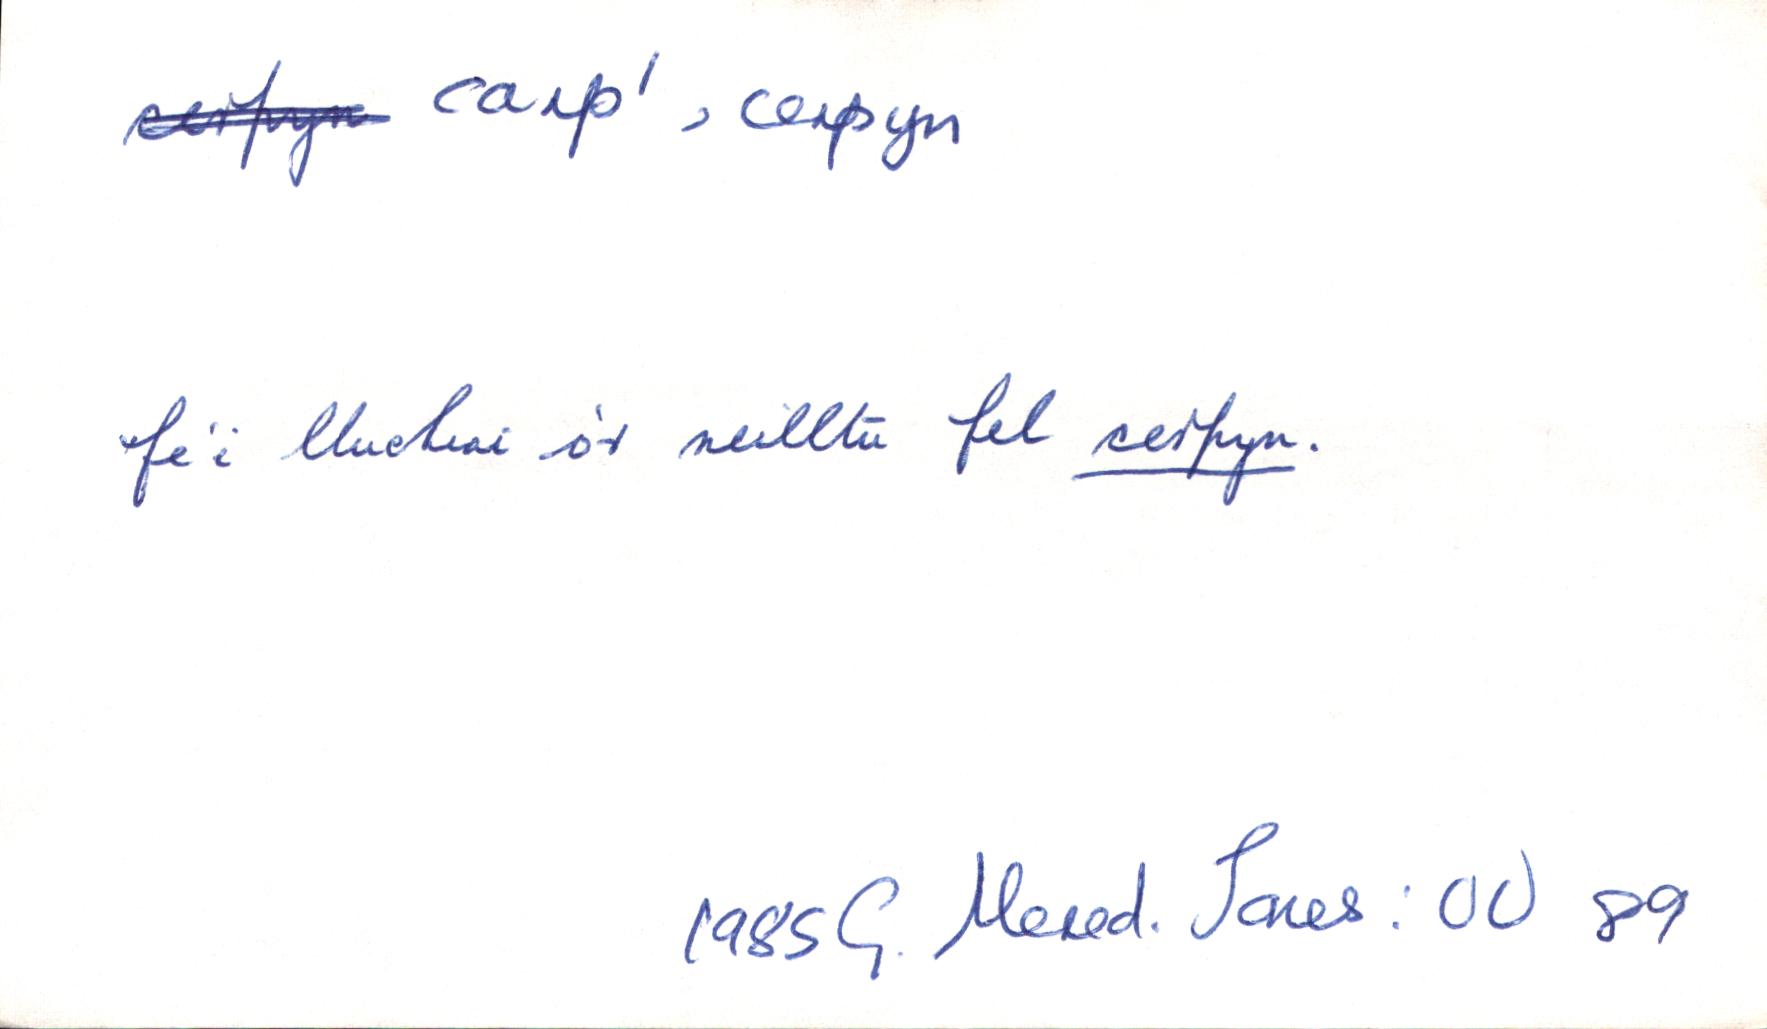 cerpyn carp¹, cerpyn
fe'i lluchiai o'r neilltu fel cerpyn.
1985 G. Mered. Jones: OU 89